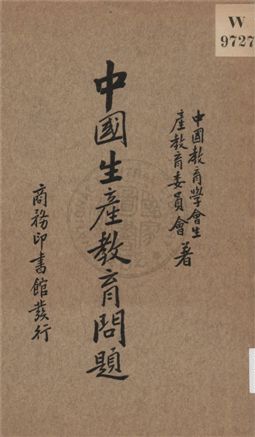 W
9727
中國教育學會生
產教育委員會 著
中國生產教育問題
商務印書館發行